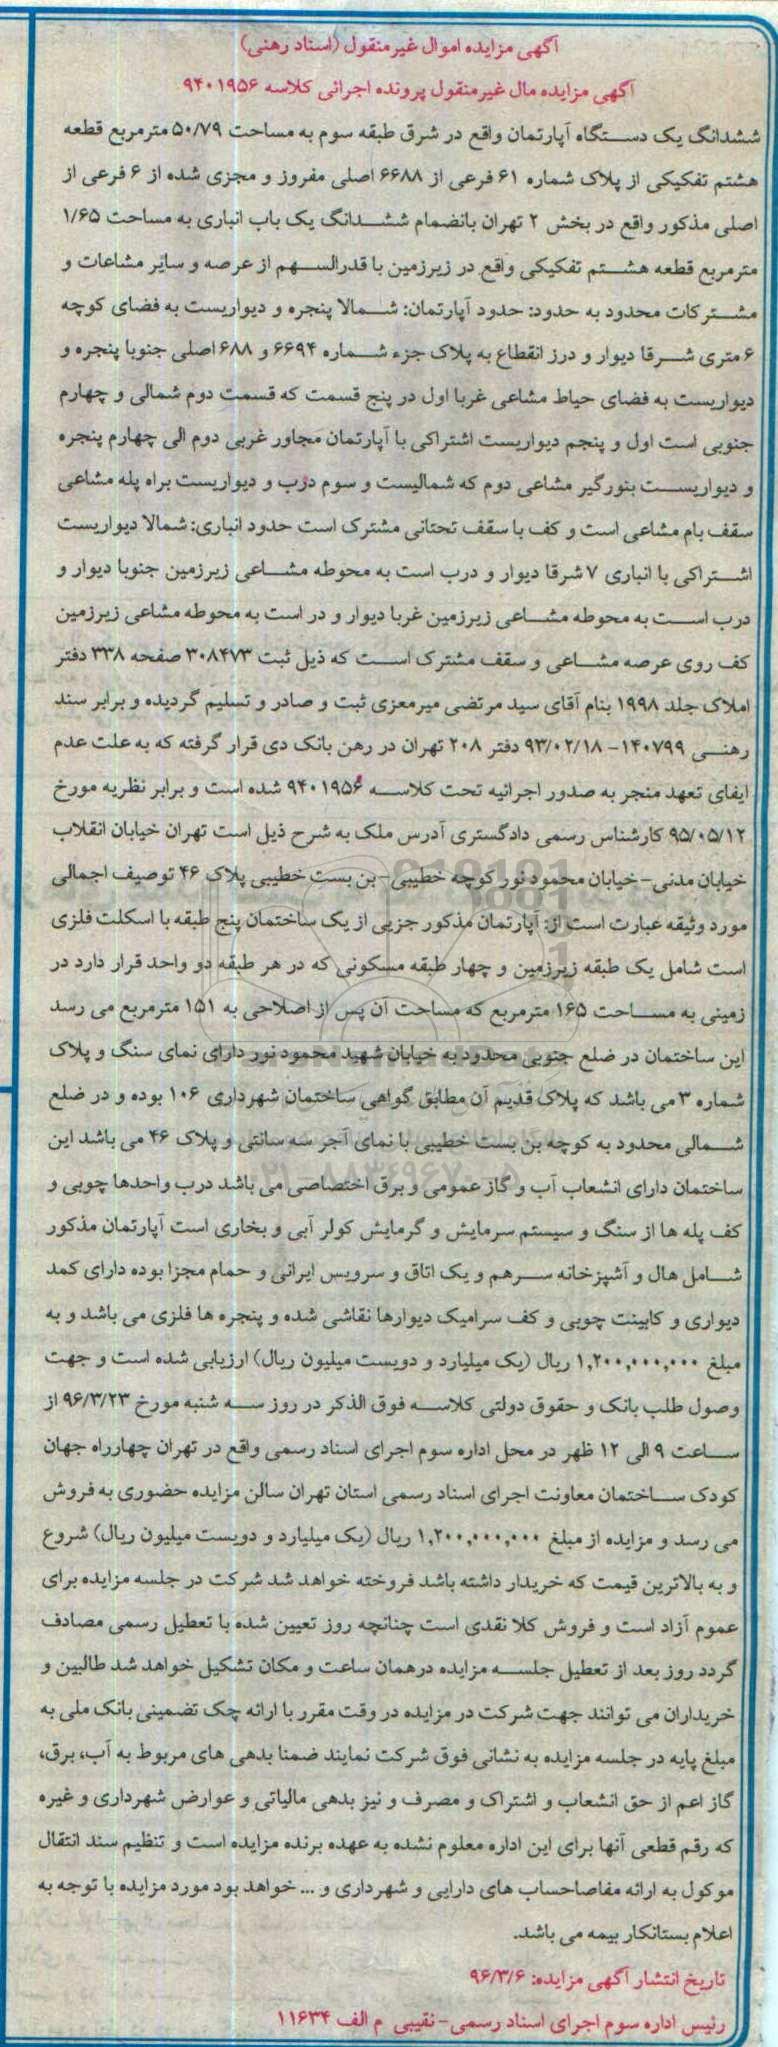 آگهی مزایده اموال غیرمنقول (اسناد رهنی)
آگهی مزایده مال غیرمنقول پرونده اجرائی کلاسه ۹۴۰۱۹۵۶
ششدانگ یک دستگاه آپارتمان واقع در شرق طبقه سوم به مساحت ۵۰/۷۹ مترمربع قطعه
هشتم تفکیکی از پلاک شماره ۶۱ فرعی از ۶۶۸۸ اصلی مفروز و مجزی شده از ۶ فرعی از
اصلی مذکور واقع در بخش ۲ تهران بانضمام ششدانگ یک باب انباری به مساحت ۱/۶۵
مترمربع قطعه هشتم تفکیکی واقع در زیرزمین با قدرالسهم از عرصه و سایر مشاعات و
مشترکات محدود به حدود: حدود آپارتمان: شمالا پنجره و دیواریست به فضای کوچه
۶ متری شرقا دیوار و درز انقطاع به پلاک جزء شماره ۶۶۹۴ و ۶۸۸ اصلی جنوبا پنجره و
دیواریست به فضای حیاط مشاعی غربا اول در پنج قسمت که قسمت دوم شمالی و چهارم
جنوبی است اول و پنجم دیواریست اشتراکی با آپارتمان مجاور غربی دوم الی چهارم پنجره
و دیواریست بنورگیر مشاعی دوم که شمالیست و سوم درب و دیواریست براه پله مشاعی
سقف بام مشاعی است و کف با سقف تحتانی مشترک است حدود انباری: شمالا دیواریست
اشتراکی با انباری ۷ شرقا دیوار و درب است به محوطه مشاعی زیرزمین جنوبا دیوار و
درب است به محوطه مشاعی زیرزمین غربا دیوار و در است به محوطه مشاعی زیرزمین
کف روی عرصه مشاعی و سقف مشترک است که ذیل ثبت ۳۰۸۴۷۳ صفحه ۳۳۸ دفتر
املاک جلد ۱۹۹۸ بنام آقای سید مرتضی میرمعزی ثبت و صادر و تسلیم گردیده و برابر سند
رهنی ۱۴۰۷۹۹- ۹۳/۰۲/۱۸ دفتر ۲۰۸ تهران در رهن بانک دی قرار گرفته که به علت عدم
ایفای تعهد منجر به صدور اجرائیه تحت کلاسه ۹۴۰۱۹۵۶ شده است و برابر نظریه مورخ
۹۵/۰۵/۱۲ کارشناس رسمی دادگستری آدرس ملک به شرح ذیل است تهران خیابان انقلاب
خیابان مدنی- خیابان محمود نور کوچه خطیبی- بن بست خطیبی پلاک ۴۶ توصیف اجمالی
مورد وثیقه عبارت است از: آپارتمان مذکور جزیی از یک ساختمان پنج طبقه با اسکلت فلزی
است شامل یک طبقه زیرزمین و چهار طبقه مسکونی که در هر طبقه دو واحد قرار دارد در
زمینی به مساحت ۱۶۵ مترمربع که مساحت آن پس از اصلاحی به ۱۵۱ مترمربع می رسد
این ساختمان در ضلع جنوبی محدود به خیابان شهید محمود نور دارای نمای سنگ و پلاک
شماره ۳ می باشد که پلاک قدیم آن مطابق گواهی ساختمان شهرداری ۱۰۶ بوده و در ضلع
شمالی محدود به کوچه بن بست خطیبی با نمای آجر سه سانتی و پلاک ۴۶ می باشد این
ساختمان دارای انشعاب آب و گاز عمومی و برق اختصاصی می باشد درب واحدها چوبی و
کف پله ها از سنگ و سیستم سرمایش و گرمایش کولر آبی و بخاری است آپارتمان مذکور
شامل هال و آشپزخانه سرهم و یک اتاق و سرویس ایرانی و حمام مجزا بوده دارای کمد
دیواری و کابینت چوبی و کف سرامیک دیوارها نقاشی شده و پنجره ها فلزی می باشد و به
مبلغ ۱,۲۰۰,۰۰۰,۰۰۰ ریال (یک میلیارد و دویست میلیون ریال) ارزیابی شده است و جهت
وصول طلب بانک و حقوق دولتی کلاسه فوق الذکر در روز سه شنبه مورخ ۹۶/۳/۲۳ از
ساعت ۹ الی ۱۲ ظهر در محل اداره سوم اجرای اسناد رسمی واقع در تهران چهارراه جهان
کودک ساختمان معاونت اجرای اسناد رسمی استان تهران سالن مزایده حضوری به فروش
می رسد و مزایده از مبلغ ۱,۲۰۰,۰۰۰,۰۰۰ ریال (یک میلیارد و دویست میلیون ریال) شروع
و به بالاترین قیمت که خریدار داشته باشد فروخته خواهد شد شرکت در جلسه مزایده برای
عموم آزاد است و فروش کلا نقدی است چنانچه روز تعیین شده با تعطیل رسمی مصادف
گردد روز بعد از تعطیل جلسه مزایده درهمان ساعت و مکان تشکیل خواهد شد طالبین و
خریداران می توانند جهت شرکت در مزایده در وقت مقرر با ارائه چک تضمینی بانک ملی به
مبلغ پایه در جلسه مزایده به نشانی فوق شرکت نمایند ضمنا بدهی های مربوط به آب، برق،
گاز اعم از حق انشعاب و اشتراک و مصرف و نیز بدهی مالیاتی و عوارض شهرداری و غیره
که رقم قطعی آنها برای این اداره معلوم نشده به عهده برنده مزایده است و تنظیم سند انتقال
موکول به ارائه مفاصاحساب های دارایی و شهرداری و ... خواهد بود مورد مزایده با توجه به
اعلام بستانکار بیمه می باشد.
تاریخ انتشار آگهی مزایده: ۹۶/۳/۶
رئیس اداره سوم اجرای اسناد رسمی- نقیبی م الف ۱۱۶۳۴